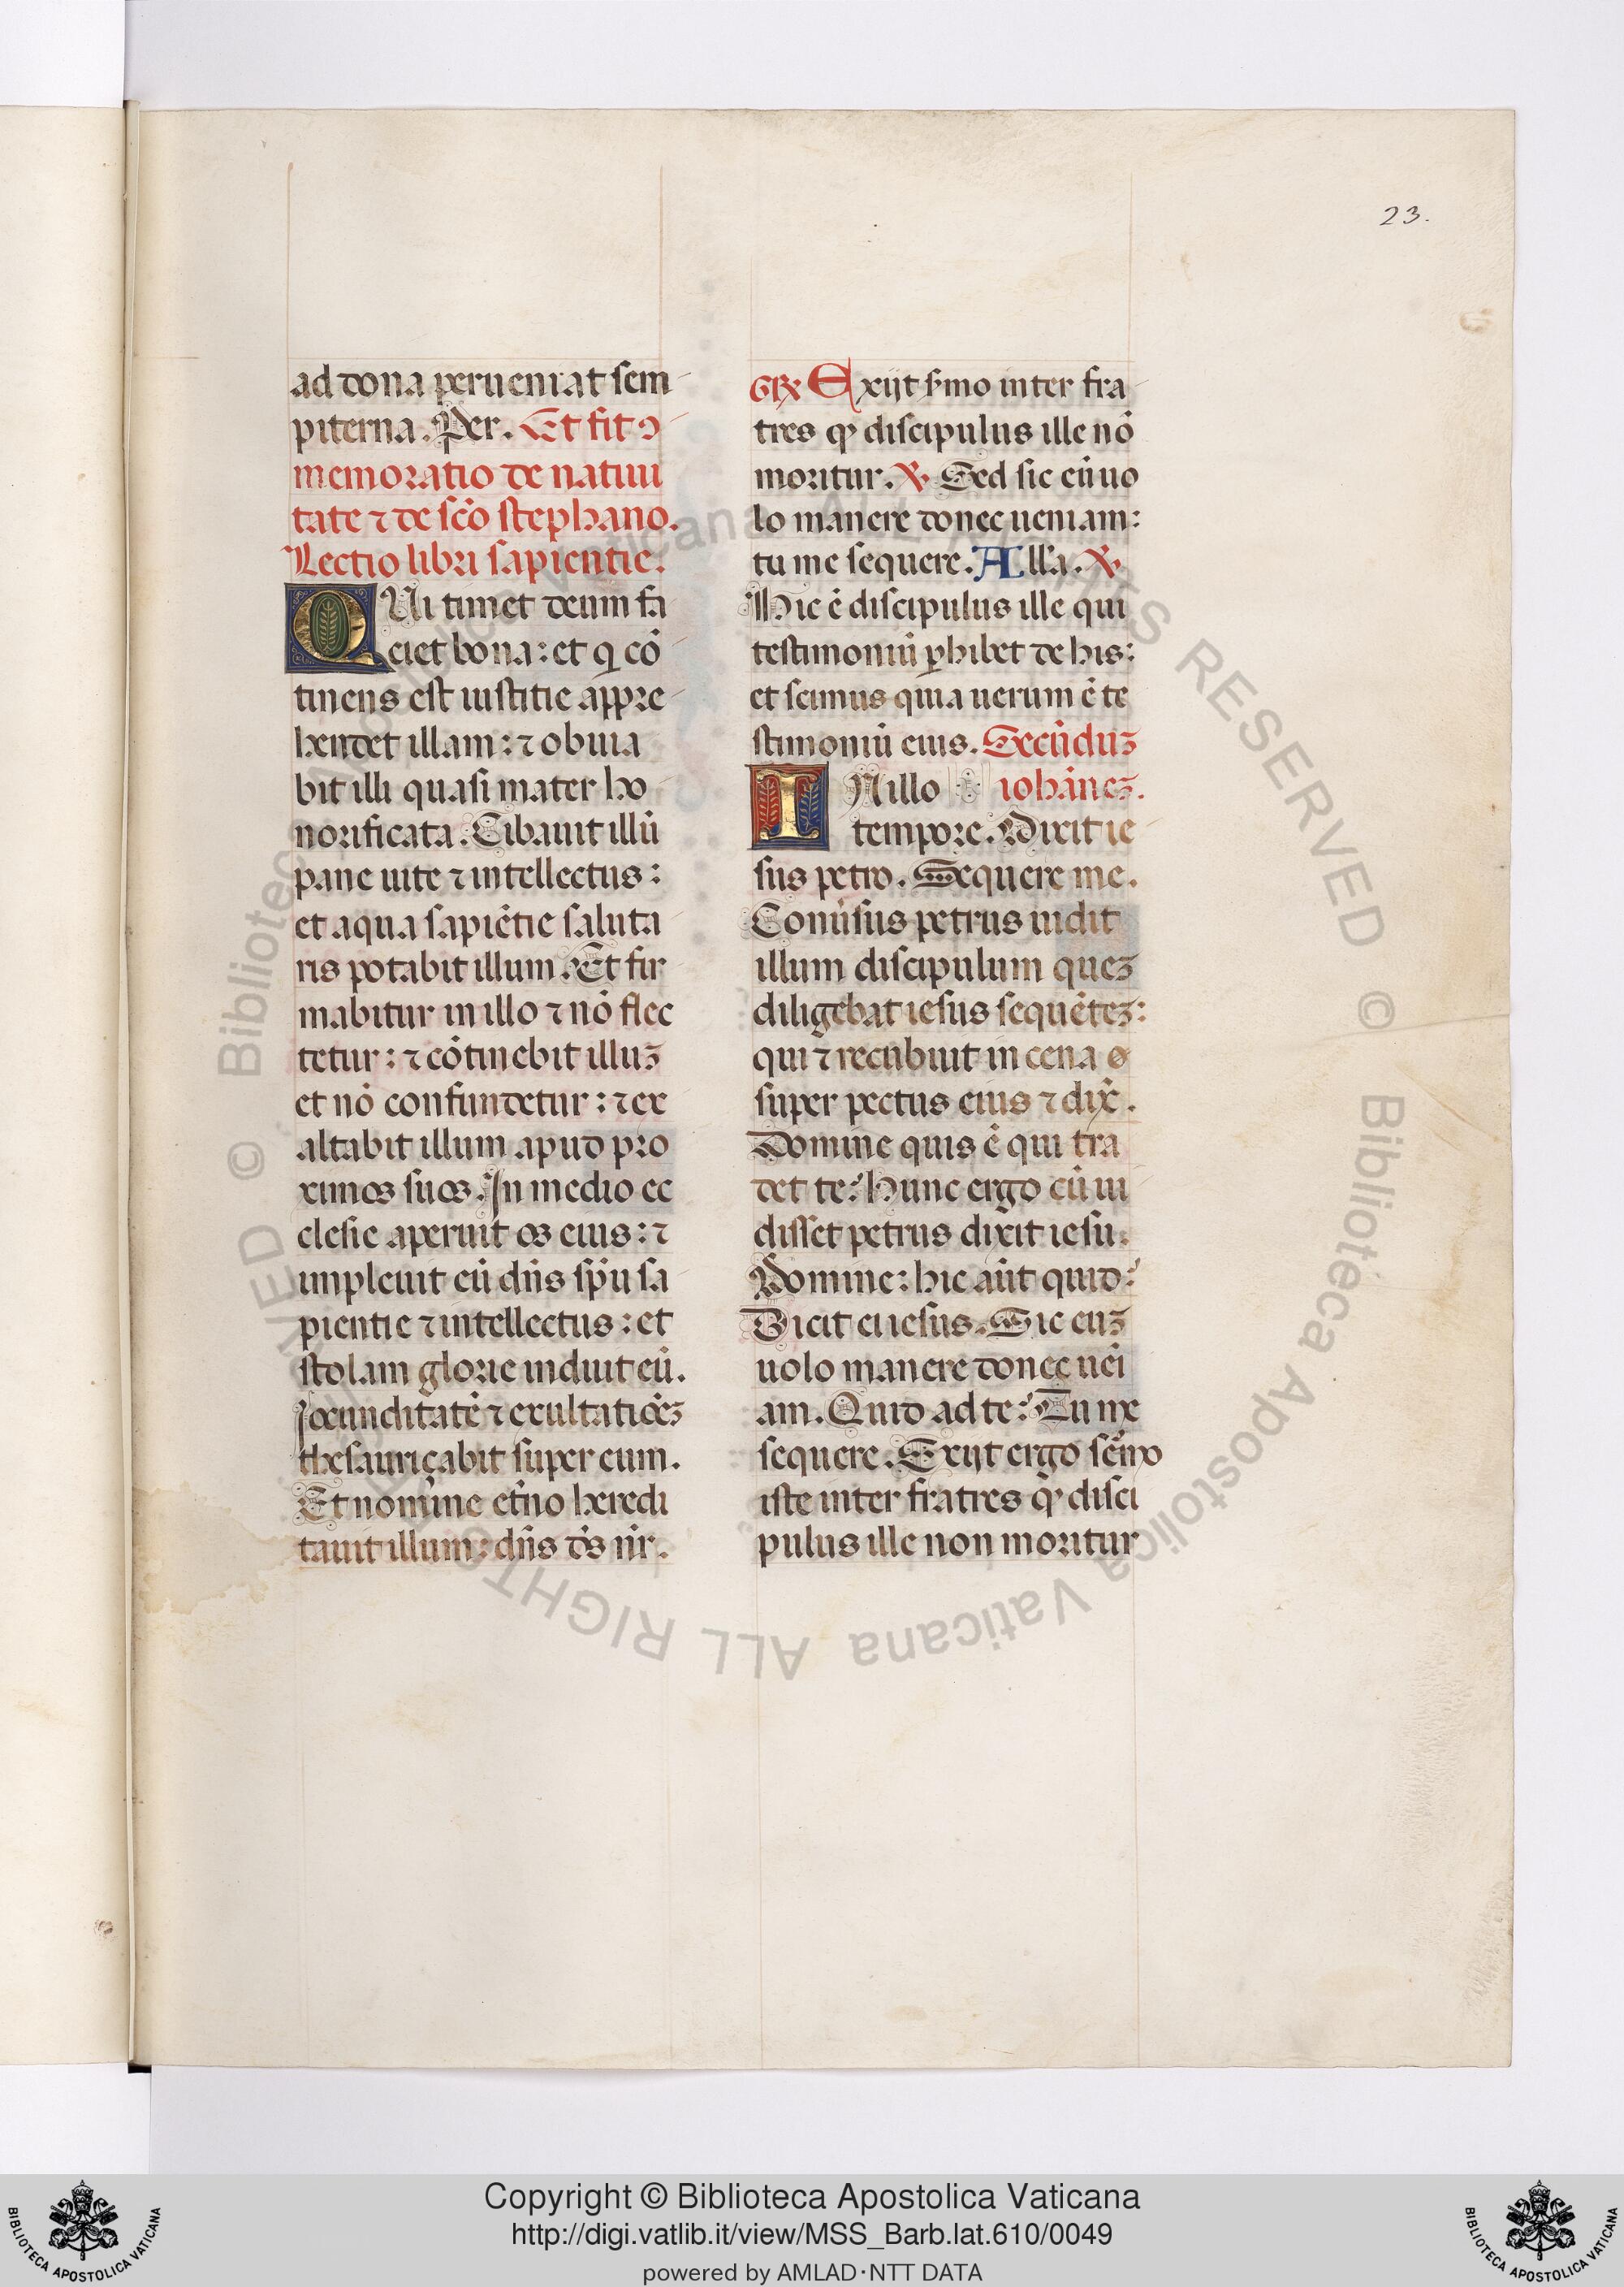 23.
ad dona perueniat sem
piterna. Per. Et fit ꝯ
memoratio de natiui
tate ⁊ de scō stephano.
Lectio libri sapientie.
QUi timet deum fa
ciet bona: et q̇ cō
tinens est iustitie appre
hendet illam: ⁊ obuia
bit illi quasi mater ho
norificata. Cibauit illū
pane uite ⁊ intellectus:
et aqua sapiētie saluta
ris potabit illum. Et fir
mabitur in illo ⁊ nō flec
tetur: ⁊ cōtinebit illuꝫ
et nō confundetur: ⁊ ex
altabit illum apud pro
ximos suos. In medio ec
clesie aperuit os eius: ⁊
impleuit eū dn̄s sp̄u sa
pientie ⁊ intellectus: et
stolam glorie induit eū.
Iocunditatē ⁊ exultatiōeꝫ
thesauriçabit super eum.
Et nomine et̄no heredi
tauit illum: dn̄s ds̄ nr̄.
GR Exijt s̄mo inter fra
tres ꝙ discipulus ille nō
moritur. ℣ Sed sic eū uo
lo manere donec ueniam:
tu me sequere. All'a. ℣
Hic ē discipulus ille qui
testimoniū ꝑhibet de his:
et scimus quia uerum ē te
stimoniū eius. Secūduꝫ
INillo iohāneꝫ.
tempore. Dixit ie
sus petro. Sequere me.
Conūsus petrus uidit
illum discipulum queꝫ
diligebat iesus sequēteꝫ:
qui ⁊ recubuit in cena
super pectus eius ⁊ dix̄.
Domine quis ē qui tra
det te? Hunc ergo cū ui
disset petrus dixit iesu.
Domine: hic aūt quid?
Dicit ei iesus. Sic euꝫ
uolo manere donec uēi
am. Quid ad te? Tu me
sequere. Exijt ergo sērmo
iste inter fratres ꝙ disci
pulus ille non moritur
© Biblioteca Apostolica Vaticana ALL RIGHTS RESERVED
© Biblioteca Apostolica Vaticana ALL RIGHTS RESERVED
BIBLIOTECA APOSTOLICA VATICANA
Copyright © Biblioteca Apostolica Vaticana
http://digi.vatlib.it/view/MSS_Barb.lat.610/0049
powered by AMLAD·NTT DATA
BIBLIOTECA APOSTOLICA VATICANA